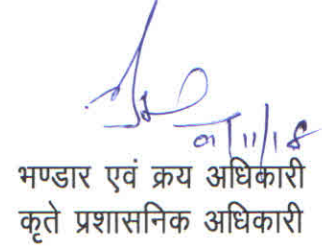 01/11/18
भण्डार एवं क्रय अधिकारी
कृते प्रशासनिक अधिकारी